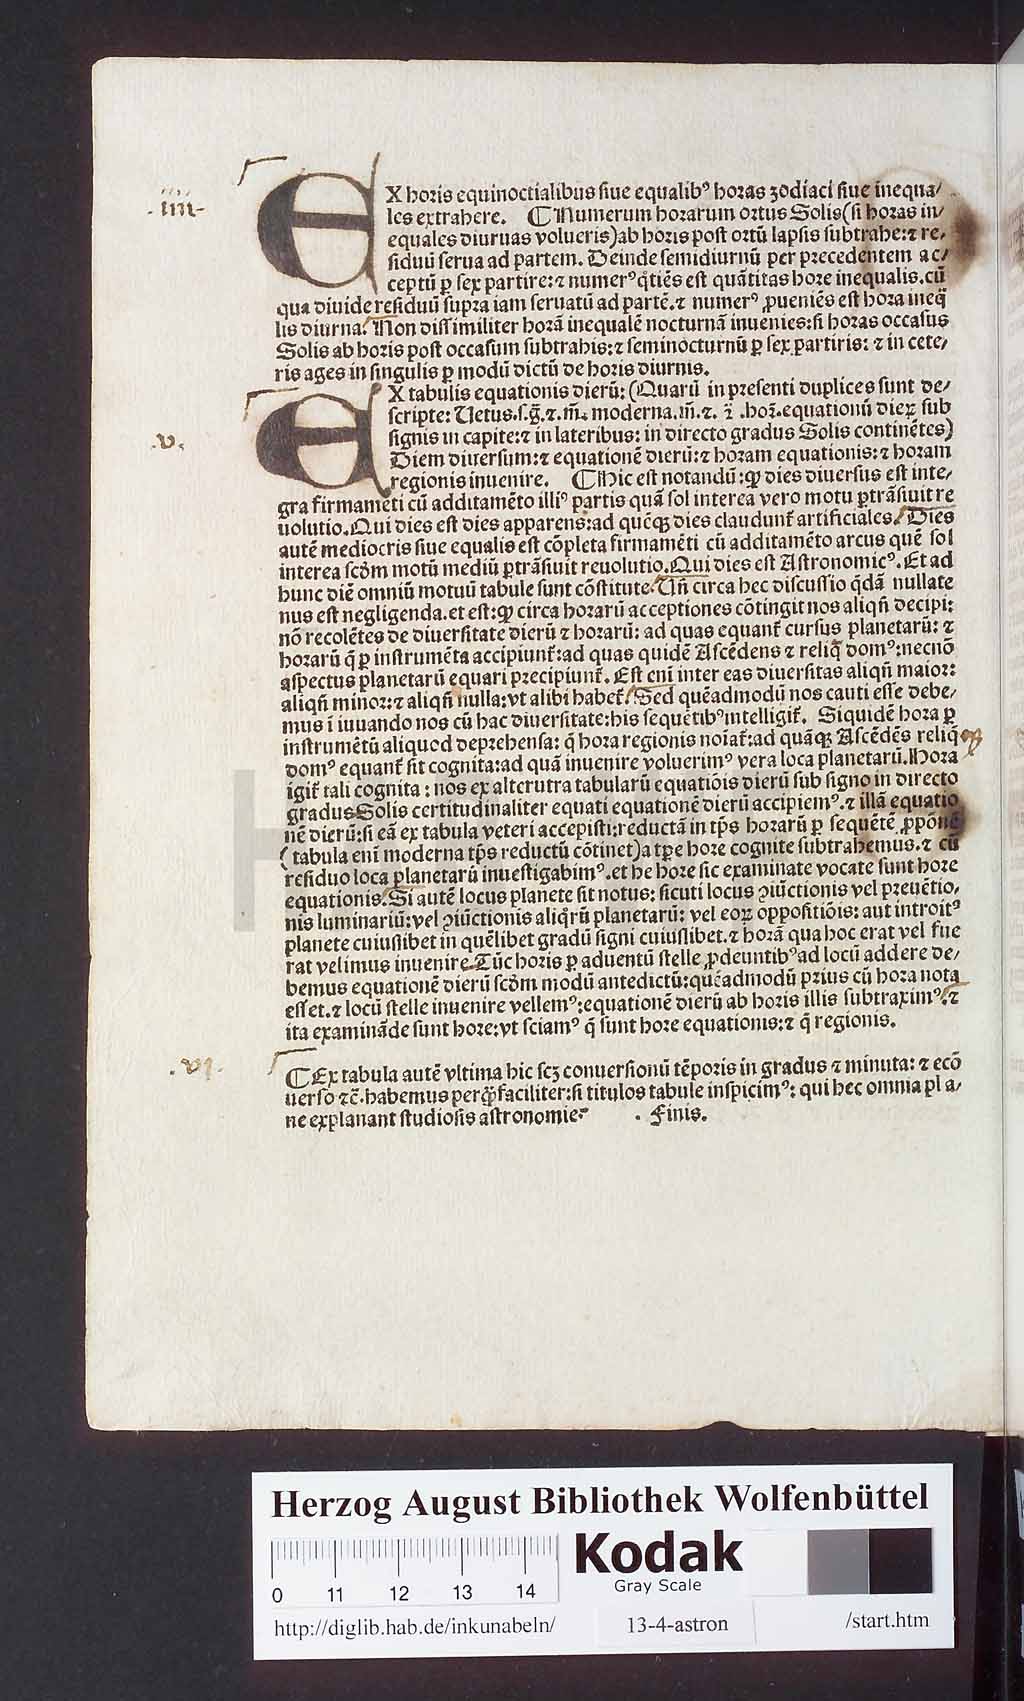 .iiii.
EX horis equinoctialibus siue equalibꝰ horas zodiaci siue inequa/
les extrahere. ¶ Numerum horarum ortus Solis (si horas in/
equales diurnas volueris) ab horis post ortū lapsis subtrahe: ⁊ re/
siduū serua ad partem. Deinde semidiurnū per precedentem ac/
ceptū p sex partire: ⁊ numerꝰ q̊tiēs est quātitas hore inequalis. cū
qua diuide residuū supra iam seruatū ad partē. ⁊ numerꝰ ꝓueniēs est hora ineq̄
lis diurna. Non dissimiliter horā inequalē nocturnā inuenies: si horas occasus
Solis ab horis post occasum subtrahis: ⁊ seminocturnū p sex partiris: ⁊ in cete/
ris ages in singulis p modū dictū de horis diurnis.
.v.
EX tabulis equationis dierū: (Quarū in presenti duplices sunt de/
scripte: Uetus. s. g̃. ⁊. m̃. moderna. m̃. ⁊. 2̃. hor. equationū dieꝝ sub
signis in capite: ⁊ in lateribus: in directo gradus Solis continētes)
Diem diuersum: ⁊ equationē dierū: ⁊ horam equationis: ⁊ horam
regionis inuenire. ¶ Hic est notandū: ꝙ dies diuersus est inte/
gra firmamēti cū additamēto illiꝰ partis quā sol interea vero motu ptrāsiuit re
uolutio. Qui dies est dies apparens: ad quēqꝫ dies claudunt̃ artificiales. Dies
autē mediocris siue equalis est cōpleta firmamēti cū additamēto arcus quē sol
interea scd̄m motū mediū ptrāsiuit reuolutio. Qui dies est Astronomicꝰ. Et ad
hunc diē omniū motuū tabule sunt cōstitute. Uñ circa hec discussio q̊dā nullate
nus est negligenda. et est: ꝙ circa horarū acceptiones cōtingit nos aliqñ decipi:
nō recolētes de diuersitate dierū ⁊ horarū: ad quas equant̃ cursus planetarū: ⁊
horarū q̄ p instrumēta accipiunt̃: ad quas quidē Ascēdens ⁊ reliq̄ domꝰ: necnō
aspectus planetarū equari precipiunt̃. Est enī inter eas diuersitas aliqñ maior:
aliqñ minor: ⁊ aliqñ nulla: vt alibi habet̃. Sed quēadmodū nos cauti esse debe/
mus ī iuuando nos cū hac diuersitate: his sequētibꝰ intelligit̃. Siquidē hora p
instrumētū aliquod deprehensa: q̄ hora regionis noīat̃: ad quāqꝫ Ascēdēs reliq̄
domꝰ equant̃ sit cognita: ad quā inuenire voluerimꝰ vera loca planetarū. Hora
igit̃ tali cognita: nos ex alterutra tabularū equatiōis dierū sub signo in directo
gradus Solis certitudinaliter equati equationē dierū accipiemꝰ. ⁊ illā equatio
nē dierū: si eā ex tabula veteri accepisti: reductā in tp̄s horarū p sequētē ꝓpōnē
(tabula enī moderna tp̄s reductū cōtinet) a tp̄e hore cognite subtrahemus. ⁊ cū
residuo loca planetarū inuestigabimꝰ. et he hore sic examinate vocate sunt hore
equationis. Si autē locus planete sit notus: sicuti locus ↄiūctionis vel preuētio/
nis luminariū: vel ↄiūctionis aliq̊rū planetarū: vel eoꝝ oppositiōis: aut introitꝰ
planete cuiuslibet in quēlibet gradū signi cuiuslibet. ⁊ horā qua hoc erat vel fue
rat velimus inuenire. Tūc horis p aduentū stelle ꝓdeuntibꝰ ad locū addere de/
bemus equationē dierū scd̄m modū antedictū: quēadmodū prius cū hora nota
esset. ⁊ locū stelle inuenire vellemꝰ: equationē dierū ab horis illis subtraximꝰ. ⁊
ita examināde sunt hore: vt sciamꝰ q̄ sunt hore equationis: ⁊ q̄ regionis.
.vi.
¶ Ex tabula autē vltima hic scꝫ conuersionū tēporis in gradus ⁊ minuta: ⁊ ecō
uerso ⁊c̄. habemus perꝙ̄ faciliter: si titulos tabule inspicimꝰ: qui hec omnia pla/
ne explanant studiosis astronomie. . Finis.
Herzog August Bibliothek Wolfenbüttel
Kodak
Gray Scale
0 11 12 13 14
http://diglib.hab.de/inkunabeln/ 13-4-astron /start.htm